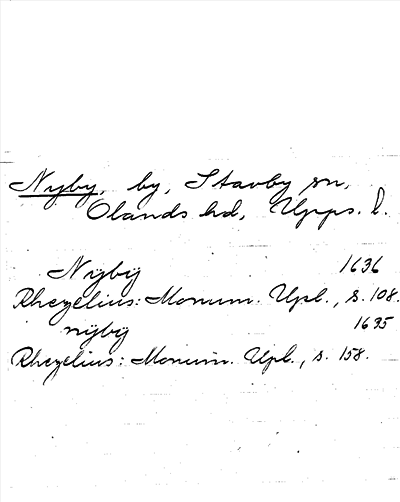 Nyby, by, Stavby sn,
Olands hd, Upps. l.
Nÿbÿ 1636
Rhezelius: Monum. Upl., s. 108.
nÿbÿ 1635
Rhezelius: Monum. Upl., s. 158.